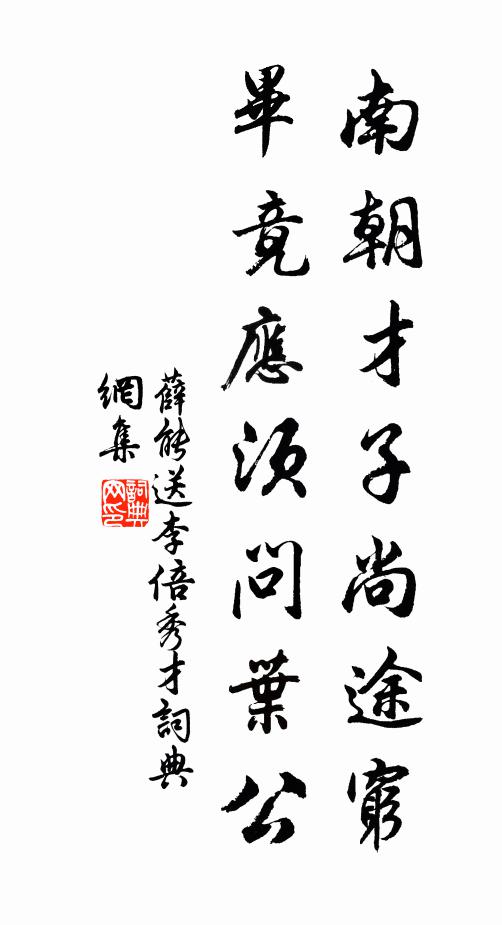 南朝才子尚途窮
畢竟應須問葉公
薛能送李倍秀才詞典
網集
詞典網印